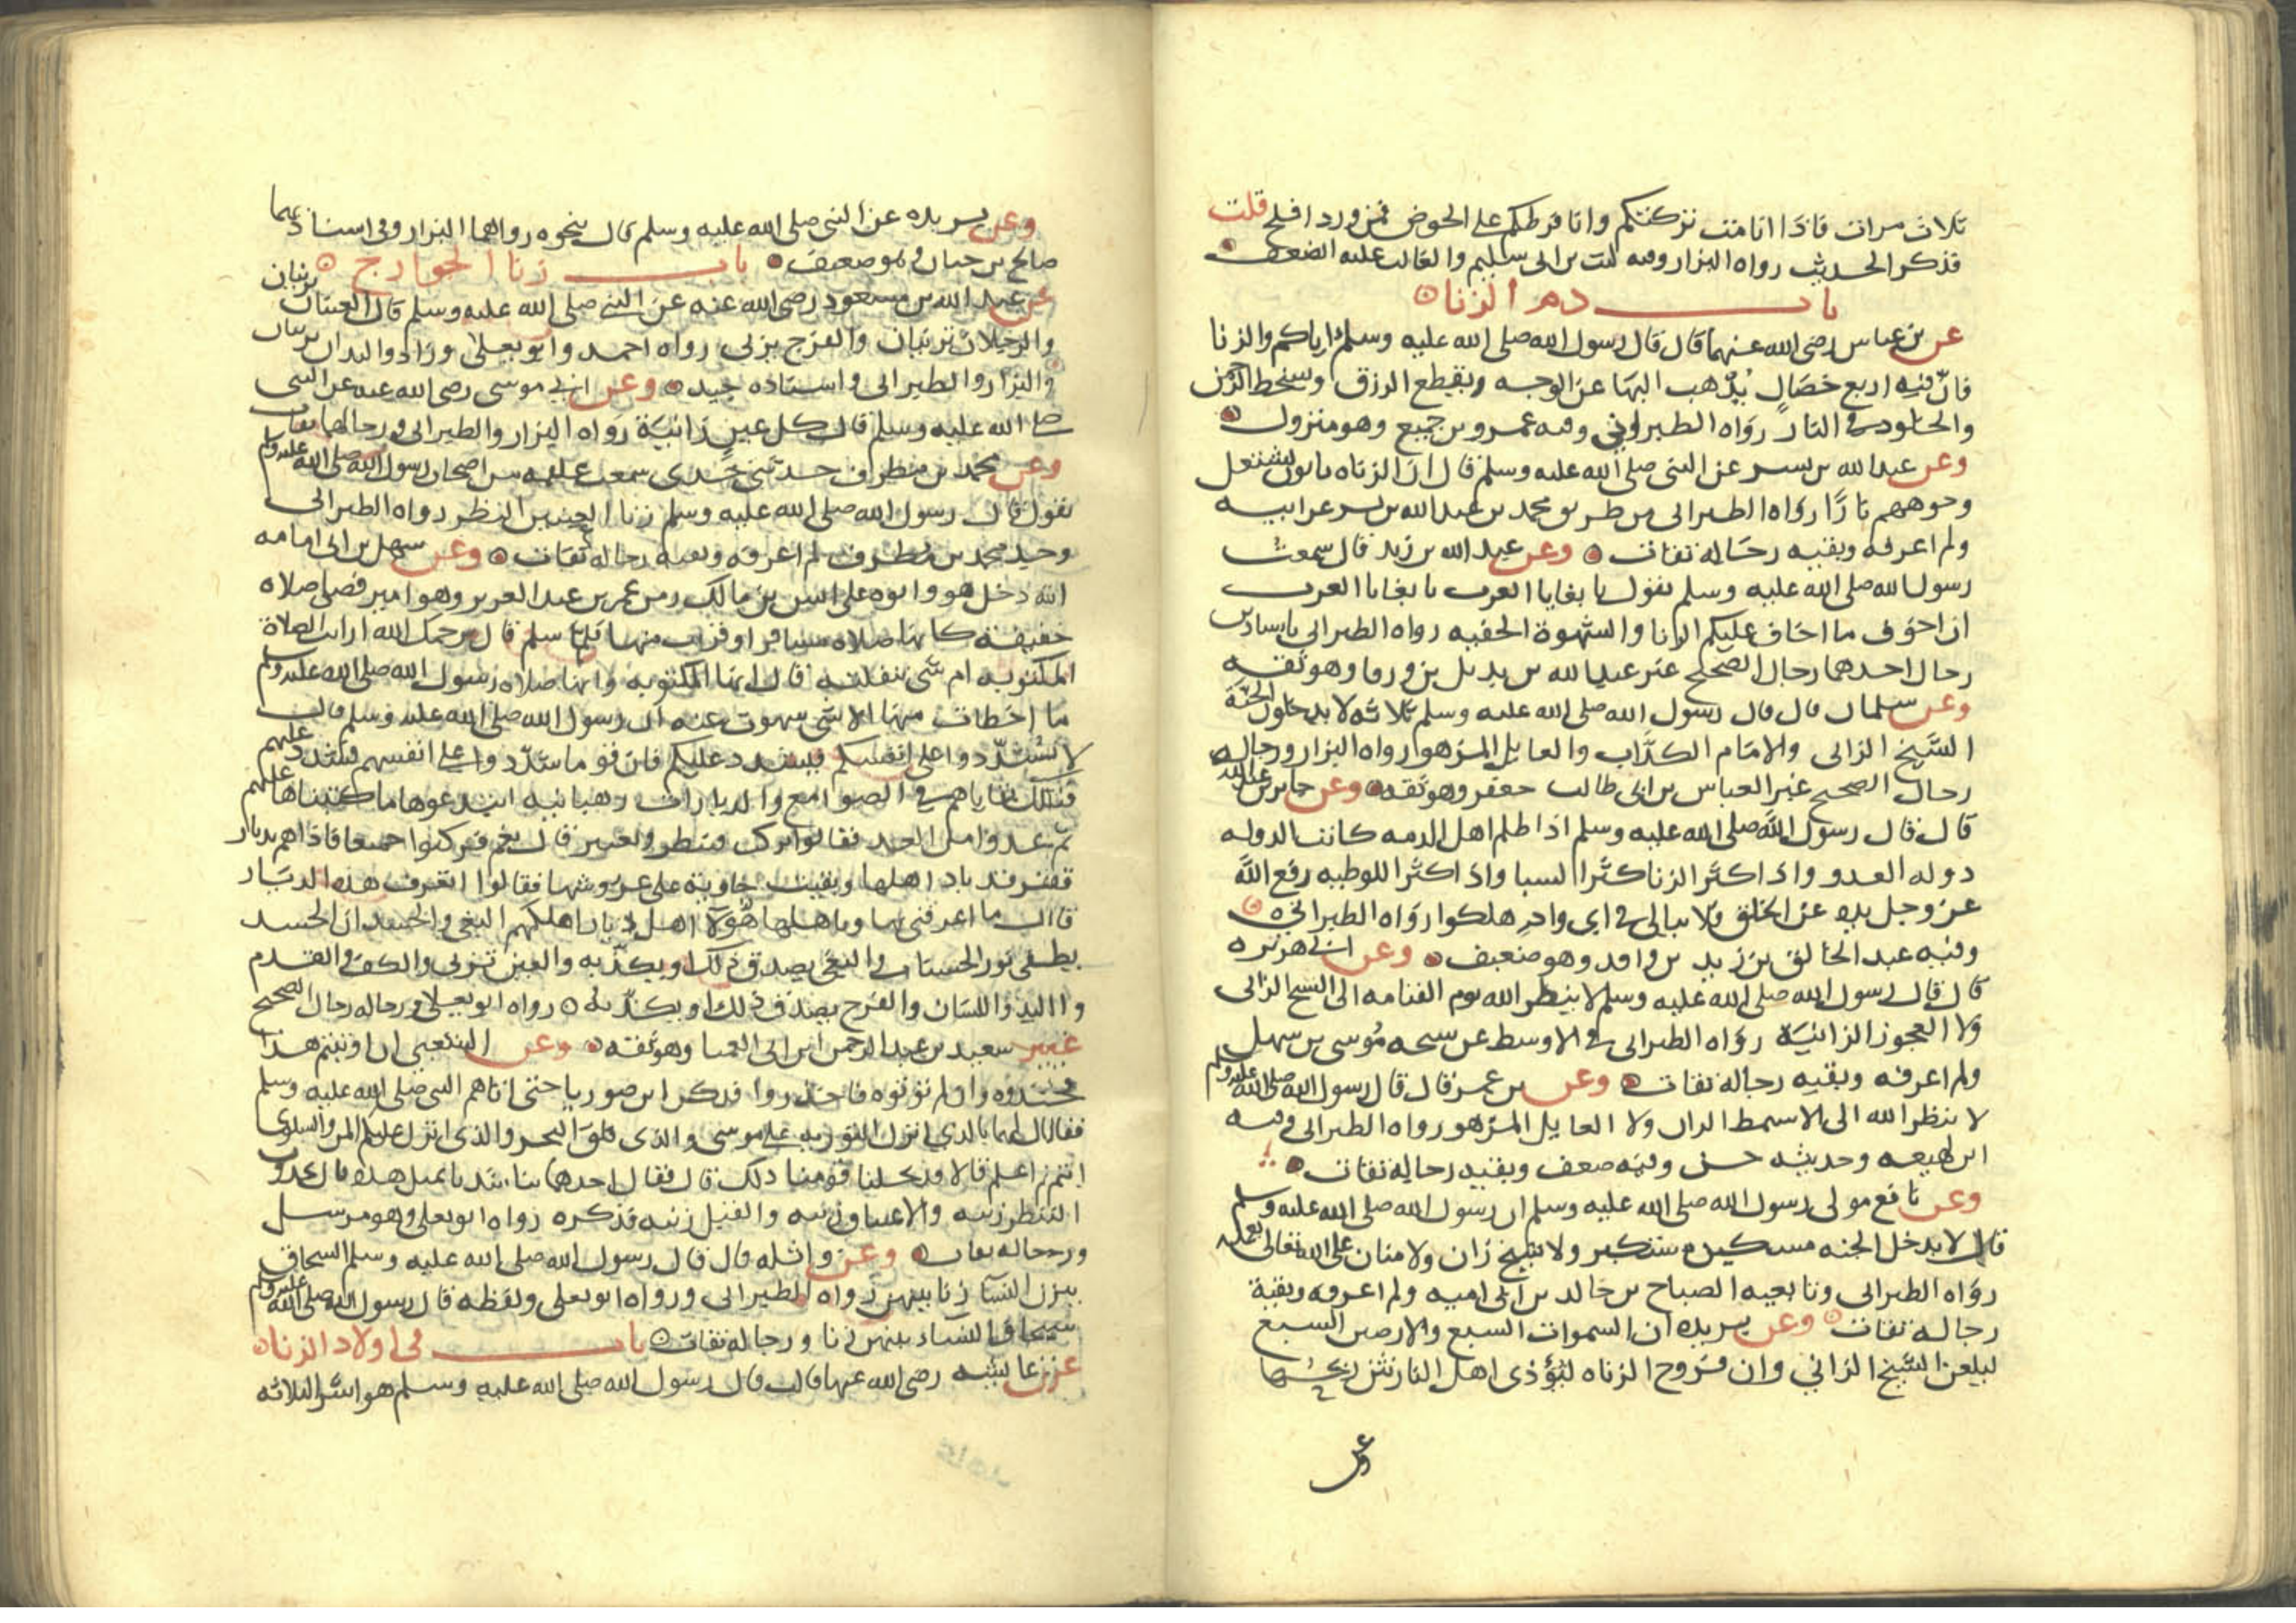 ثلاث مرات فاذا انا مت تركتكم وانا فرطكم على الحوض فمن ورد افلح قلت
فذكر الحديث رواه البزار وفيه ليث بن ابى سليم والغالب عليه الضعف
باب ذم الزنا
عن بن عباس رضى الله عنهما قال قال رسول الله صلى الله عليه وسلم اياكم والزنا
فان فيه اربع خصال يذهب البها عن الوجه ويقطع الرزق وسخط الرحمن
والخلود فى النار رواه الطبرانى وفيه عمرو بن جميع وهو متروك
وعن عبد الله بن بسر عن النبى صلى الله عليه وسلم قال ان الزناه ياتون تشتعل
وجوههم نارا رواه الطبرانى من طريق محمد بن عبد الله بن بسر عن ابيه
ولم اعرفه وبقيه رجاله ثقات وعن عبد الله بن زيد قال سمعت
رسول الله صلى الله عليه وسلم يقول يا بغايا العرب يا بغايا العرب
ان اخوف ما اخاف عليكم الزنا والشهوة الخفيه رواه الطبرانى باسنادين
رجال احدهما رجال الصحيح غير عبد الله بن بديل بن ورقا وهو ثقه
وعن سلمان قال قال رسول الله صلى الله عليه وسلم ثلاثه لا يدخلون الجنة
الشيخ الزانى والامام الكذاب والعايل المزهو رواه البزار ورجاله
رجال الصحيح غير العباس بن ابى طالب جعفر وهو ثقه وعن جابر بن عبد الله
قال قال رسول الله صلى الله عليه وسلم اذا ظلم اهل الذمه كانت الدوله
دوله العدو واذ اكثر الزنا كثر السبا واذ اكثر اللوطيه رفع الله
عز وجل يده عن الخلق فلا يبالى فى اى واد هلكوا رواه الطبرانى
وفيه عبد الخالق بن زيد بن واقد وهو ضعيف وعن ابى هريره
قال قال رسول الله صلى الله عليه وسلم لا ينظر الله يوم القيامه الى الشيخ الزانى
ولا العجوز الزانية رواه الطبرانى فى الاوسط عن شيخه موسى بن سهل
ولم اعرفه وبقيه رجاله ثقات وعن بن عمر قال قال رسول الله صلى الله عليه وسلم
لا ينظر الله الى الاشمط الزان ولا العايل المزهو رواه الطبرانى وفيه
ابن لهيعه وحديثه حسن وفيه ضعف وبقيه رجاله ثقات
وعن نافع مولى رسول الله صلى الله عليه وسلم ان رسول الله صلى الله عليه وسلم
قال لا يدخل الجنه مسكين مستكبر ولا شيخ زان ولا منان على الله تعالى بعمله
رواه الطبرانى وتابعيه الصباح بن خالد بن ابى اميه ولم اعرفه وبقية
رجاله ثقات وعن بريده ان السموات السبع والارضين السبع
ليلعن الشيخ الزاني وان فروج الزناه لتؤذى اهل النار نتن ريحها
وعن
وعن بريده عن النبى صلى الله عليه وسلم قال بنحوه رواهما البزار وفى اسنادهما
صالح بن حيان وهو ضعيف باب زنا الجوارح
عن عبد الله بن مسعود رضى الله عنه عن النبى صلى الله عليه وسلم قال العينان تزنيان
والرجلان تزنيان والفرج يزنى رواه احمد وابو يعلى وزاد واليدان تزنيان
والبزار والطبرانى واسناده جيد وعن ابى موسى رضى الله عنه عن النبى
صلى الله عليه وسلم قال كل عين زانية رواه البزار والطبرانى ورجالهما ثقات
وعن محمد بن مطرف حدثنى جدى سمعت علقمه من اصحاب رسول الله صلى الله عليه وسلم
يقول قال رسول الله صلى الله عليه وسلم زنا العينين النظر رواه الطبرانى
وجد محمد بن مطرف لم اعرفه وبقيه رجاله ثقات وعن سهل بن ابى امامه
انه دخل هو وابوه على انس بن مالك زمن عمر بن عبد العزيز وهو امير فصلى صلاه
خفيفة كانها صلاه مسافر او قريب منها فلما سلم قال يرحمك الله ارايت الصلاة
المكتوبه ام شى تنفلته قال انها المكتوبه وانها صلاه رسول الله صلى الله عليه وسلم
ما اخطات منها الا شى سهوت عنه ان رسول الله صلى الله عليه وسلم قال
لا تشددوا على انفسكم فيشدد عليكم فان قوما شددوا على انفسهم فشدد عليهم
فتلك بقاياهم فى الصوامع والديارات رهبانيه ابتدعوها ما كتبناها عليهم
ثم غدوا من الغد فقالوا نركب فننظر ونعتبر قال نعم فركبوا جميعا فاذا هم بديار
قفر قد باد اهلها وبقيت خاوية على عروشها فقالوا اتعرف هذه الديار
قال ما اعرفنى بها وباهلها هولا اهل ديار اهلكهم البغى والحسد ان الحسد
يطفى نور الحسنات والبغى يصدق ذلك او يكذبه والعين تزنى والكف والقدم
واليد واللسان والفرج يصدق ذلك او يكذبه رواه ابو يعلى ورجاله رجال الصحيح
غير سعيد بن عبد الرحمن ابن ابى العميا وهو ثقه وعن الشعبى ان اوتيتم هذا
فخذوه وان لم تؤتوه فاحذروا فذكر ابن صوريا حتى اتاهم النبى صلى الله عليه وسلم
فقال لهما بالذي انزل التوريه على موسى والذى فلق البحر والذى انزل عليكم المن والسلوى
انتم اعلم قالا قد نحلنا قومنا ذلك قال فقال احدهما
النظر زنيه والاعتناق زنيه والقبل زنيه فذكره رواه ابو يعلى وهو مرسل
ورجاله ثقات وعن واثله قال قال رسول الله صلى الله عليه وسلم السحاق
بين النسا زنا بينهن رواه الطبرانى ورواه ابو يعلى ولفظه قال رسول الله صلى الله عليه وسلم
سحاق النساء بينهن زنا ورجاله ثقات باب فى اولاد الزنا
عن عايشه رضى الله عنها قالت قال رسول الله صلى الله عليه وسلم هو اشر الثلاثه